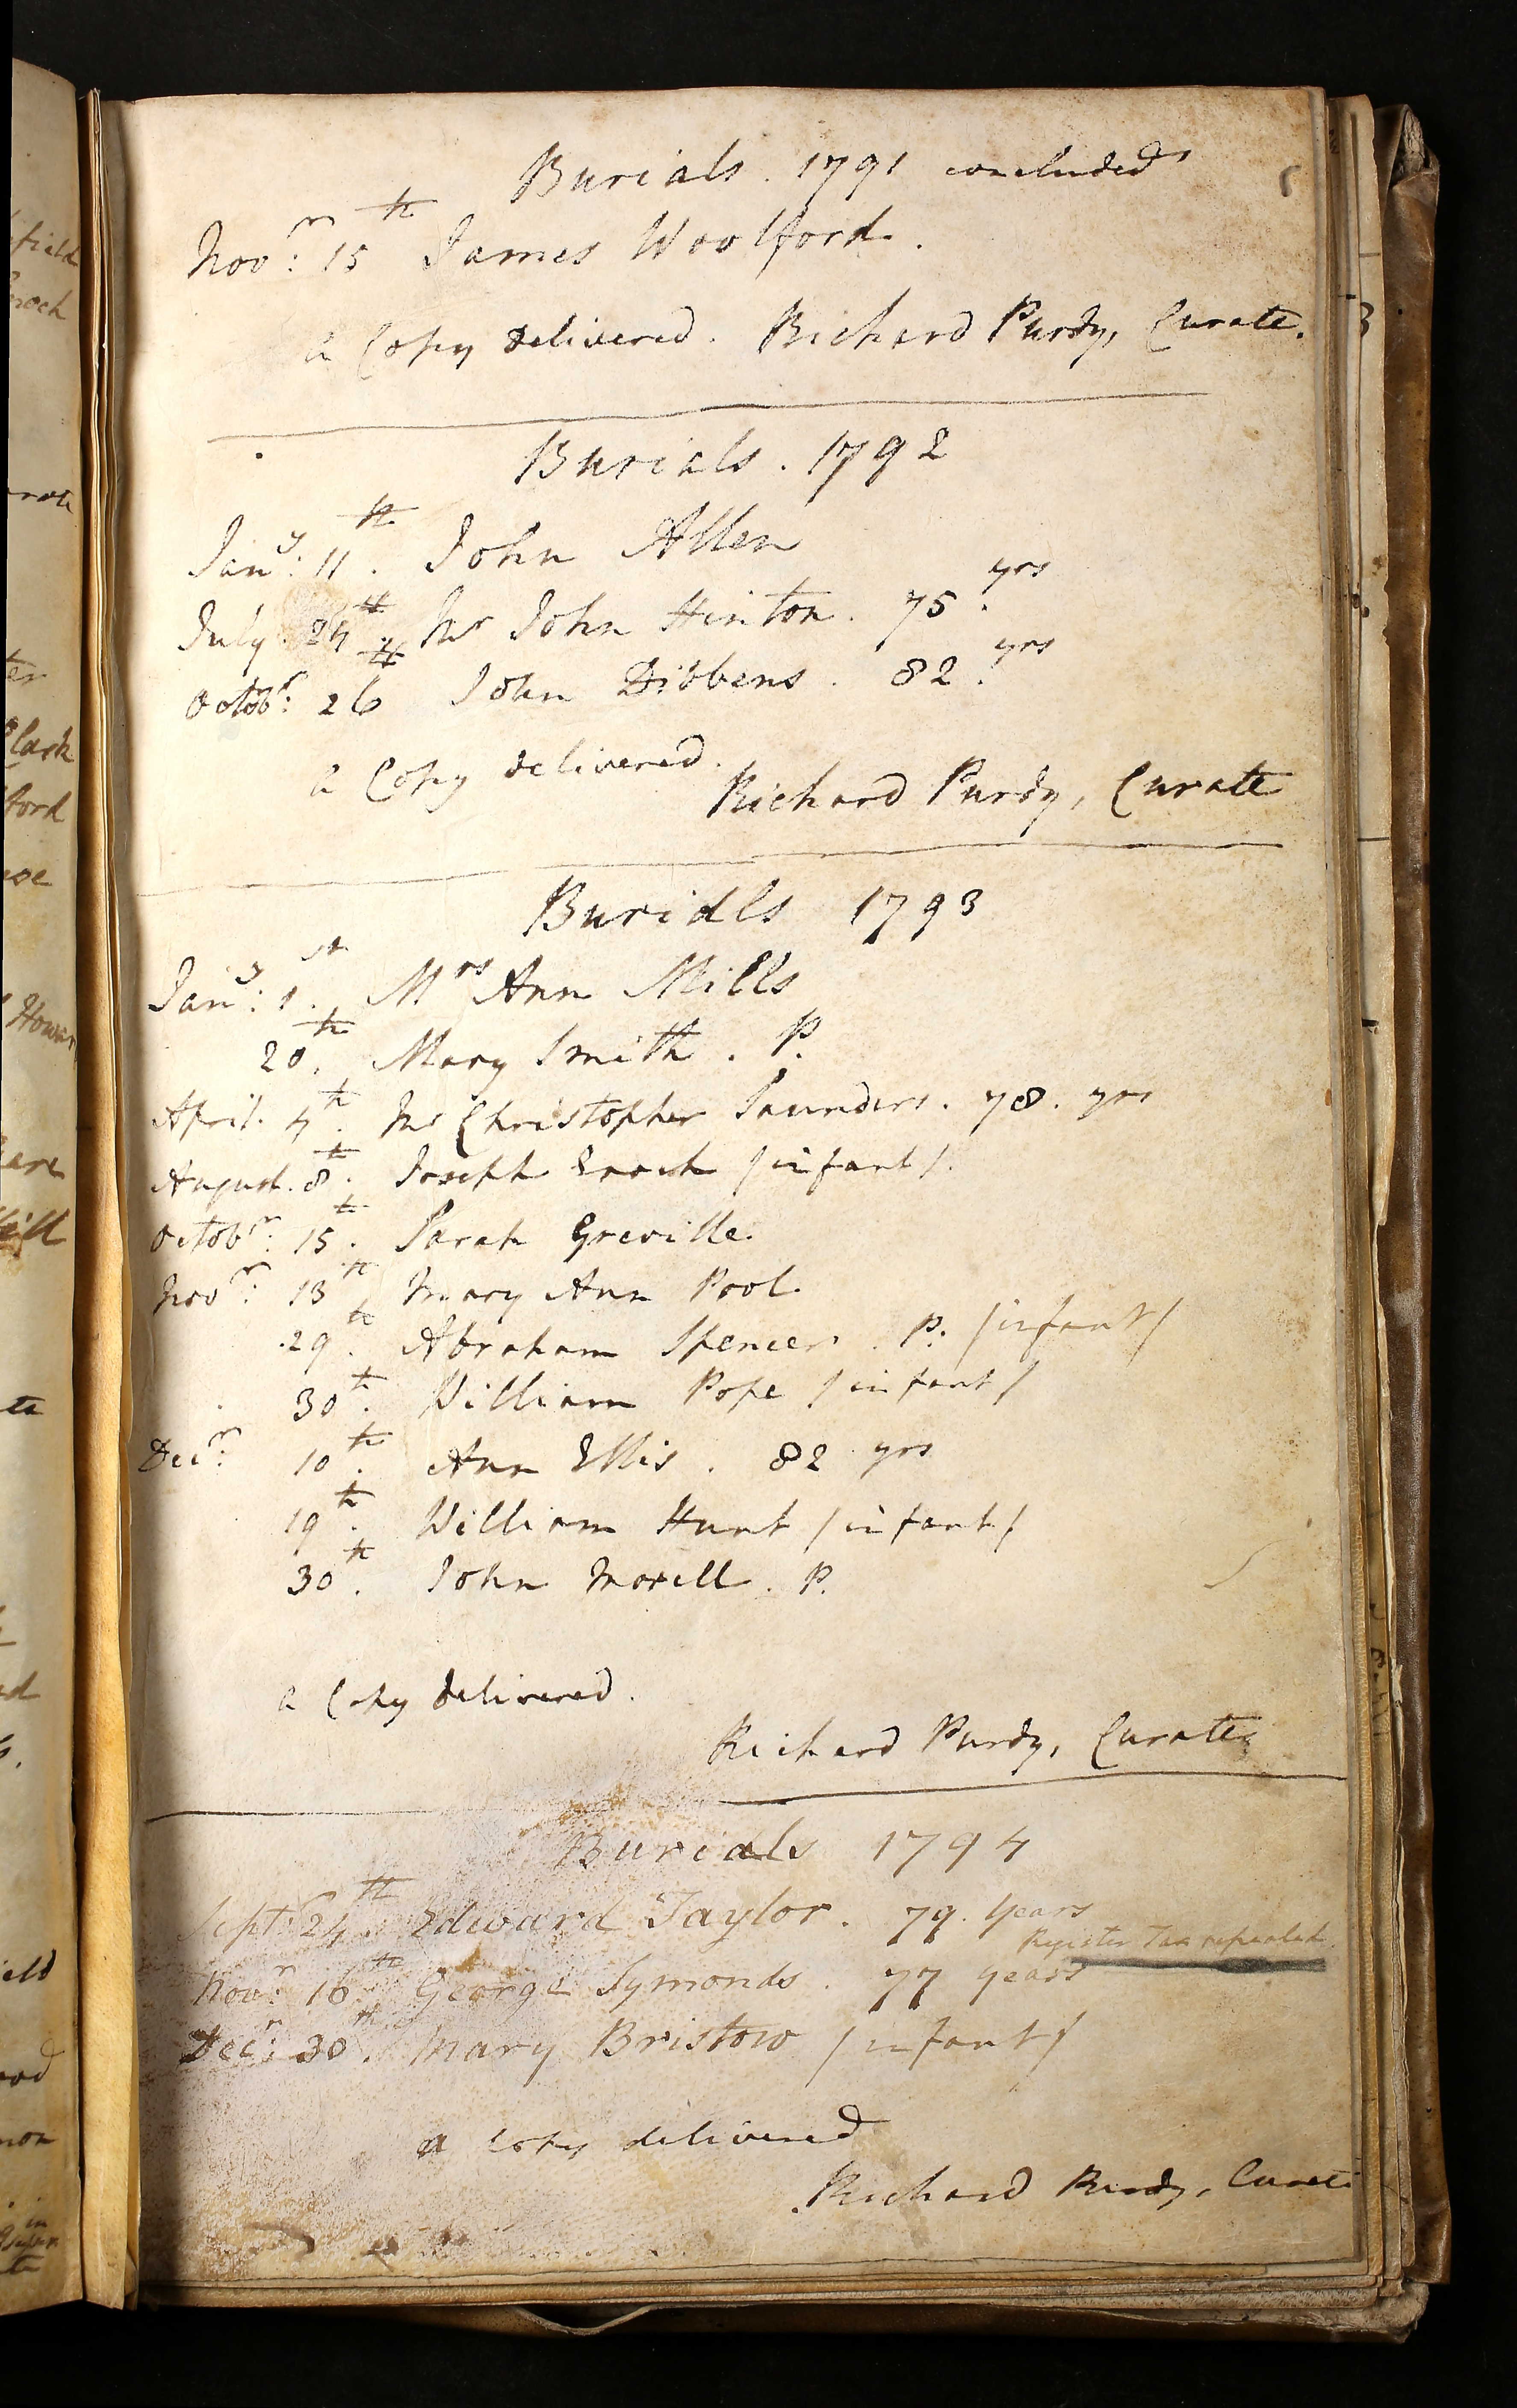 Burials. 1791 concluded
Novr: 15th James Woolford.
a Copy delivered. Richard Purdy, Curate.
Burials. 1792
Jany: 11th. John Allen
July 24th. Mr John Hinton. 75 yrs.
Octobr: 26th John Dibbens. 82 yrs.
a Copy delivered.
Richard Purdy, Curate
Burials 1793
Jany: 1st. Mrs Ann Mills
20th. Mary Smith. P.
April. 4th. Mr Christopher Saunders. 78. yrs
August. 8th. Joseph Enoch /infant/.
Octobr: 15th. Sarah Greville.
Novr: 13th Mary Ann Pool.
29th. Abraham Spencer. P. /infant/
30th. William Pope /infant/
Decr: 10th. Ann Ellis. 82 yrs
19th. William Hunt /infant/
30th. John Morell. P.
a Copy delivered.
Richard Purdy, Curate
Burials 1794
Septr: 24th. Edward Taylor. 79. years
Register Tax repealed.
Novr: 16th. George Symonds. 77 years
Decr: 30th. Mary Bristow /infant/
a copy delivered
Richard Purdy, Curate